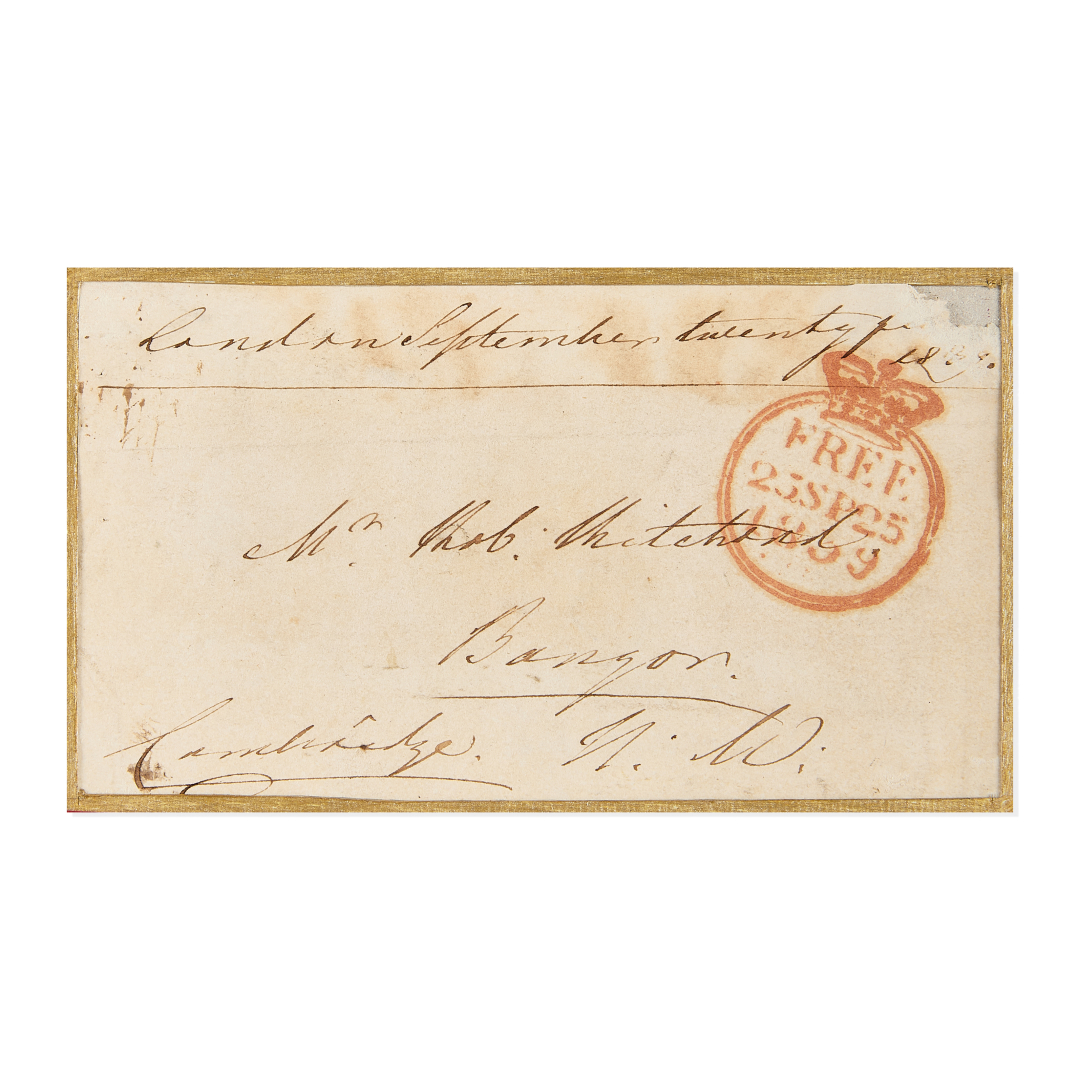 London September twenty
18
FREE
25SP25
1839
Mr. Thos.
Bangor.
Cambridge. N. W.